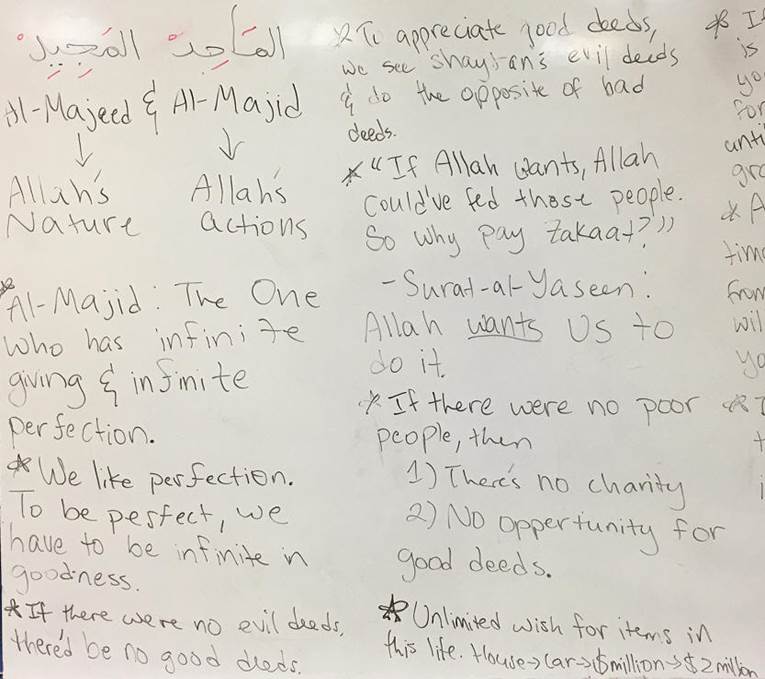 الماجدُ المَجِيدُ
Al-Majeed & Al-Majid
↓ ↓
Allah's Allah's
Nature actions
* Al-Majid: The One
who has infinite
giving & infinite
perfection.
* We like perfection.
To be perfect, we
have to be infinite in
goodness.
* If there were no evil deeds,
there'd be no good deeds.
* To appreciate good deeds,
we see shaytan's evil deeds
& do the opposite of bad
deeds.
* "If Allah wants, Allah
could've fed those people.
So why pay zakaat?"
- Surat-al-Yaseen:
Allah wants us to
do it.
* If there were no poor
people, then
1) There's no charity
2) No oppertunity for
good deeds.
* Unlimited wish for items in
this life. House→Car→$million→$2million
* I
is
yo
for
unti
gro
* A
tim
from
wil
yo